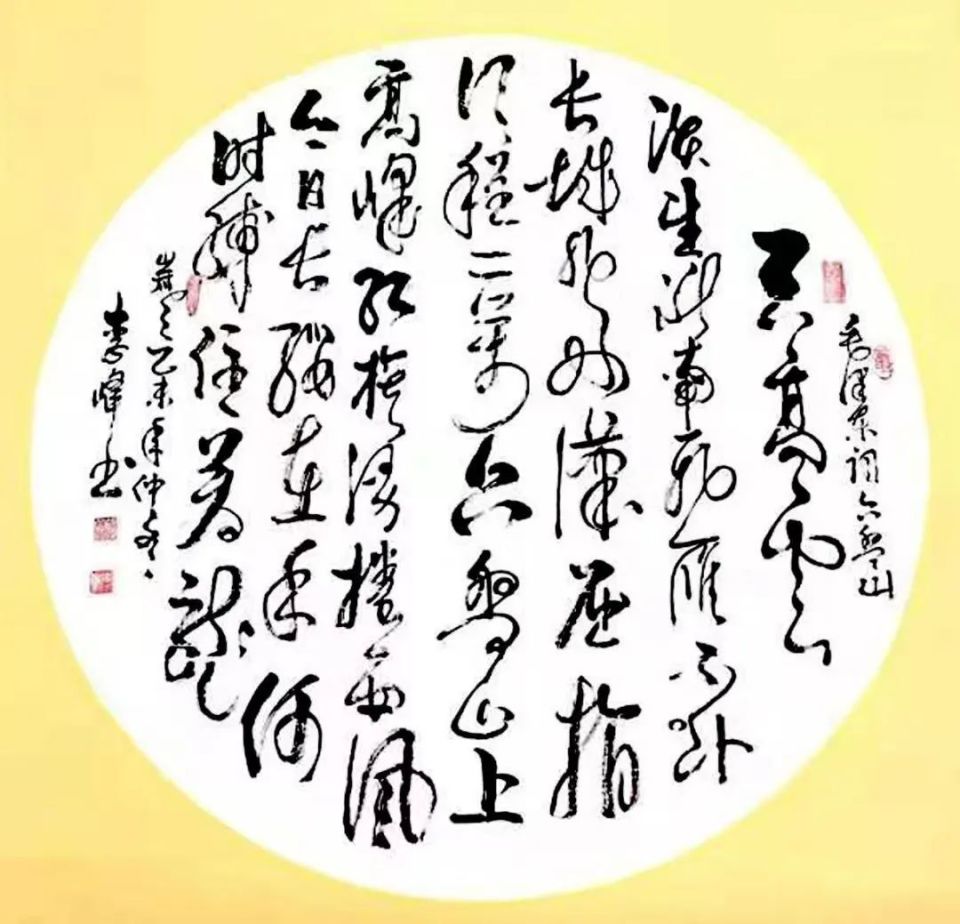 毛泽东词六盘山
天高云
淡望断南飞雁不到
长城非好汉屈指
行程二万六盘山上
高峰红旗漫卷西风
今日长缨在手何
时缚住苍龙
岁次乙未年仲冬
李峰书